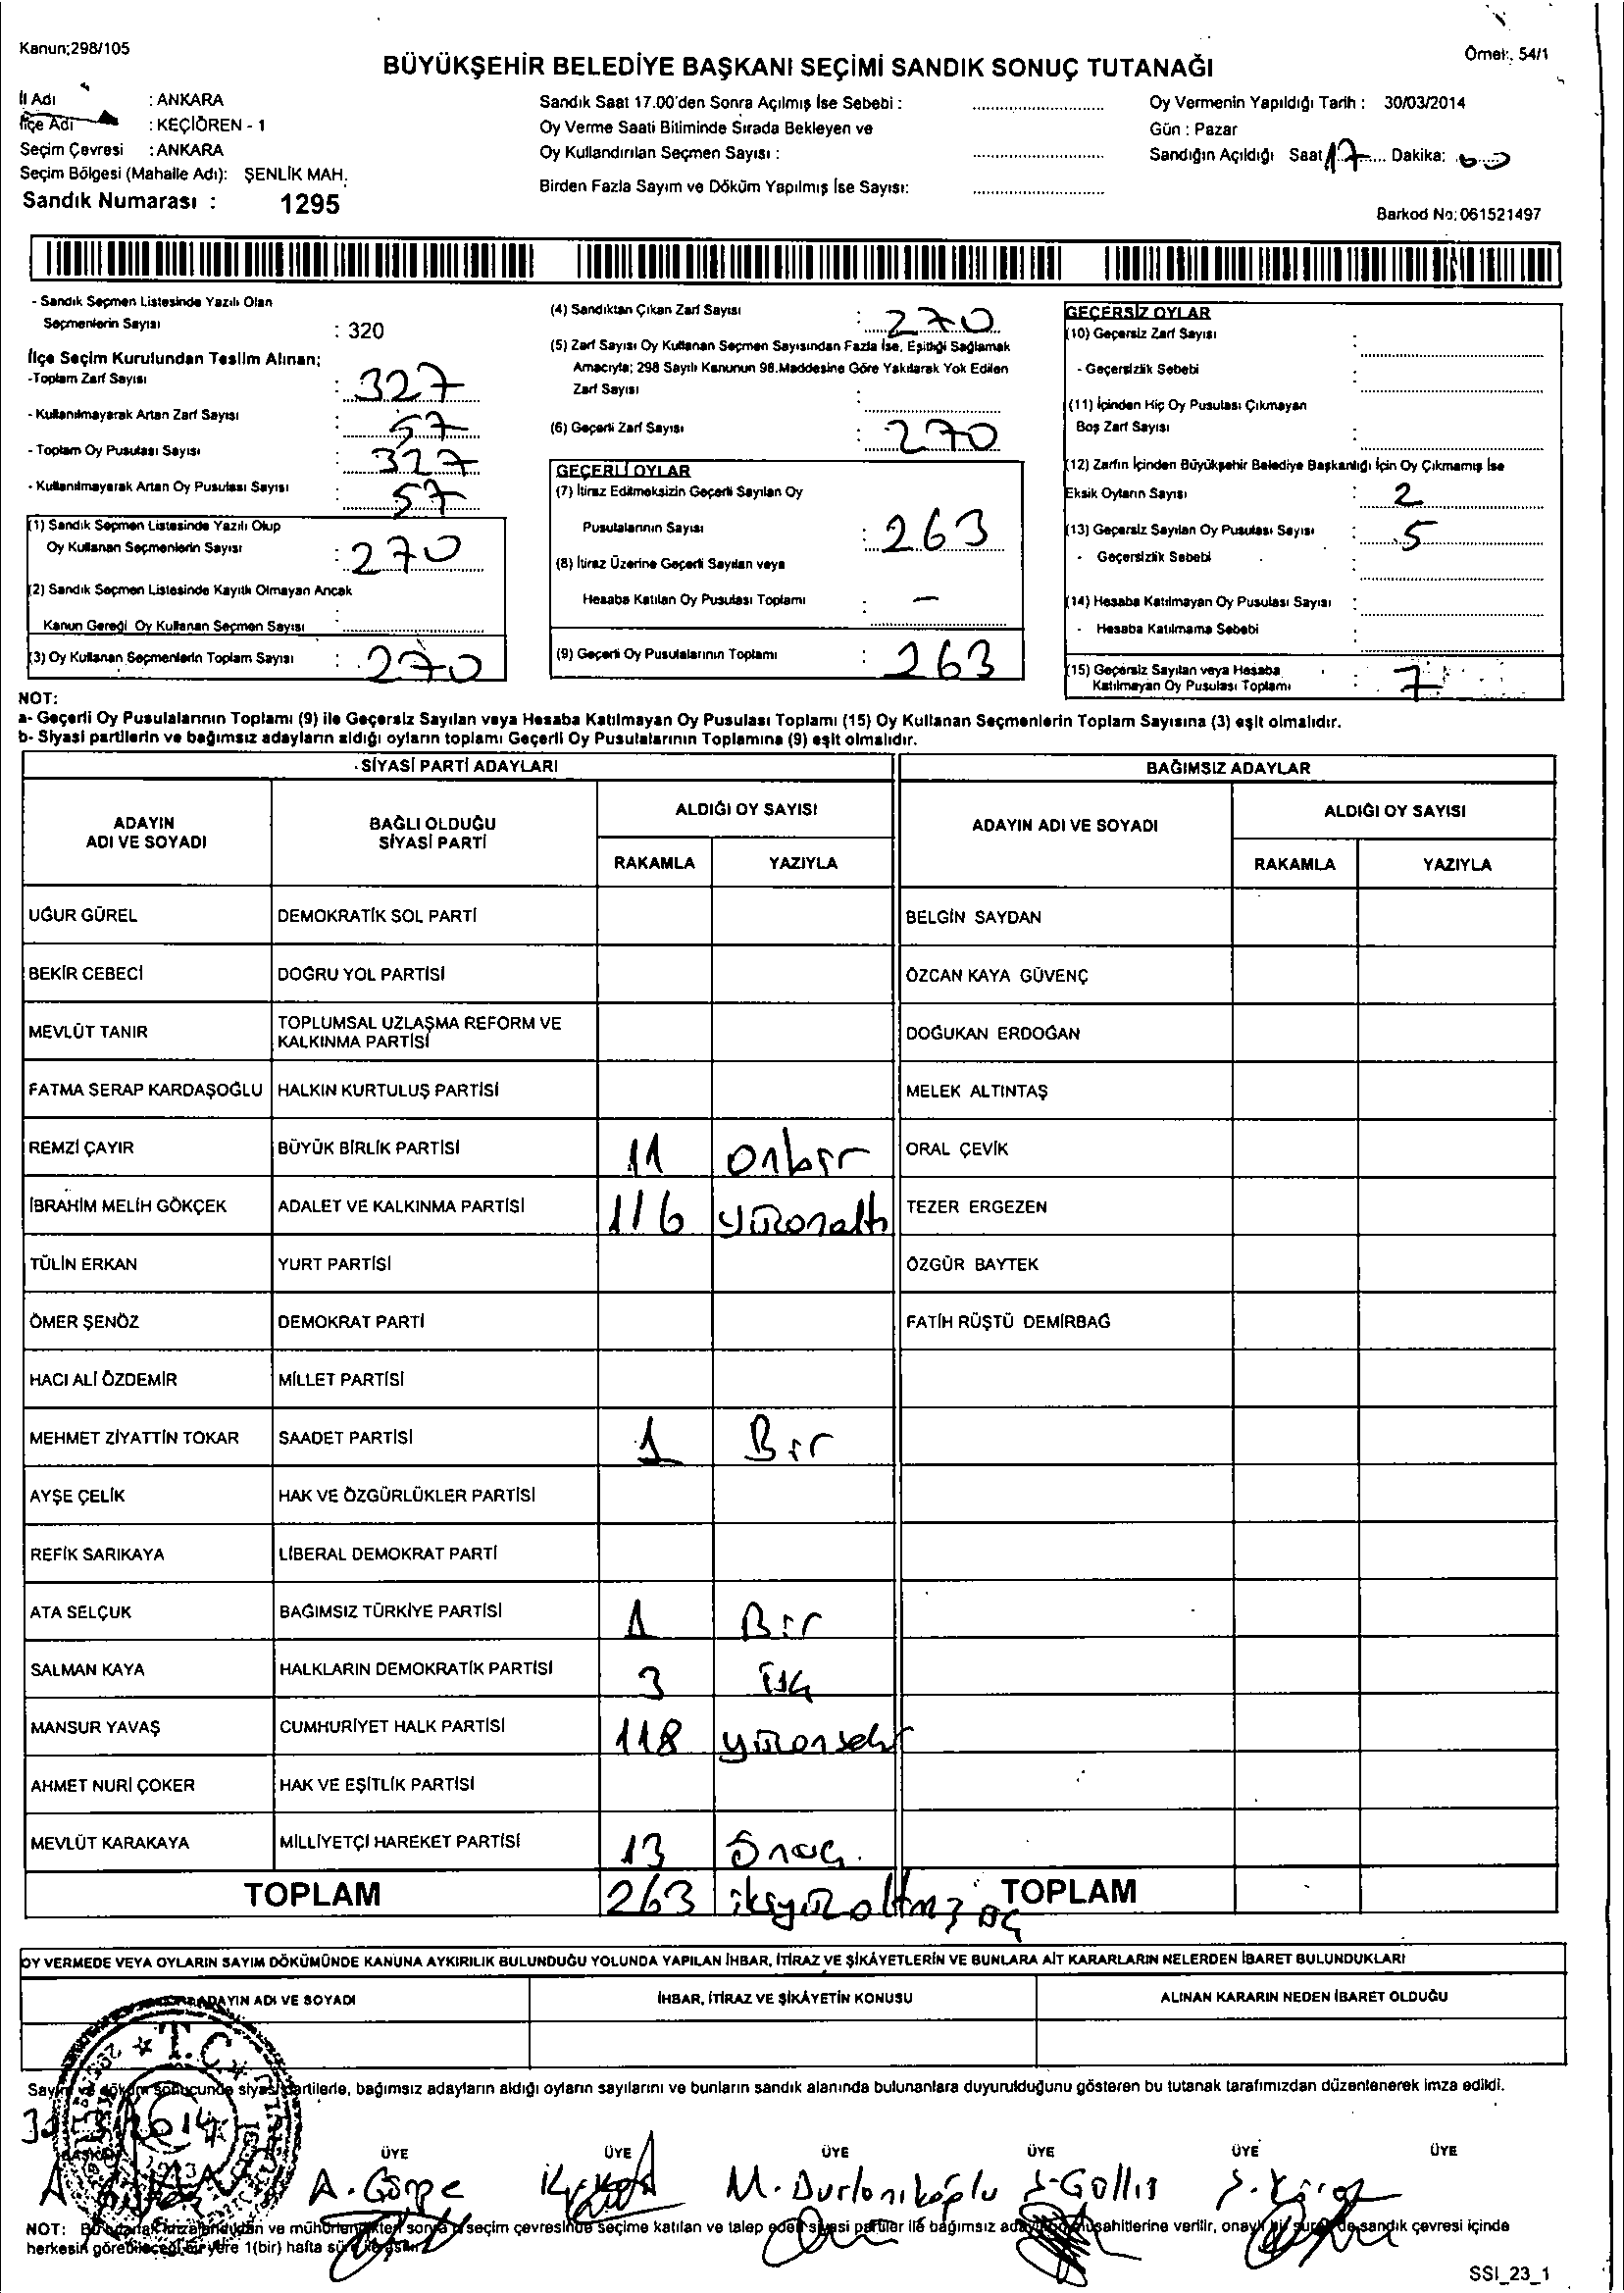 Kanun;298/105
Örnek: 54/1
BÜYÜKŞEHİR BELEDİYE BAŞKANI SEÇİMİ SANDIK SONUÇ TUTANAĞI
İl Adı : ANKARA
İlçe Adı : KEÇİÖREN - 1
Seçim Çevresi : ANKARA
Seçim Bölgesi (Mahalle Adı): ŞENLİK MAH.
Sandık Numarası : 1295
Sandık Saat 17.00'den Sonra Açılmış İse Sebebi :
Oy Verme Saati Bitiminde Sırada Bekleyen ve
Oy Kullandırılan Seçmen Sayısı :
Birden Fazla Sayım ve Döküm Yapılmış İse Sayısı:
Oy Vermenin Yapıldığı Tarih : 30/03/2014
Gün : Pazar
Sandığın Açıldığı Saat 17 Dakika: 00
Barkod No: 061521497
- Sandık Seçmen Listesinde Yazılı Olan
Seçmenlerin Sayısı : 320
İlçe Seçim Kurulundan Teslim Alınan;
-Toplam Zarf Sayısı : 327
- Kullanılmayarak Artan Zarf Sayısı : 57
- Toplam Oy Pusulası Sayısı : 327
- Kullanılmayarak Artan Oy Pusulası Sayısı : 57
(1) Sandık Seçmen Listesinde Yazılı Olup
Oy Kullanan Seçmenlerin Sayısı : 270
(2) Sandık Seçmen Listesinde Kayıtlı Olmayan Ancak
Kanun Gereği Oy Kullanan Seçmen Sayısı :
(3) Oy Kullanan Seçmenlerin Toplam Sayısı : 270
(4) Sandıktan Çıkan Zarf Sayısı : 270
(5) Zarf Sayısı Oy Kullanan Seçmen Sayısından Fazla İse, Eşitliği Sağlamak
Amacıyla; 298 Sayılı Kanunun 98.Maddesine Göre Yakılarak Yok Edilen
Zarf Sayısı :
(6) Geçerli Zarf Sayısı : 270
GEÇERLİ OYLAR
(7) İtiraz Edilmeksizin Geçerli Sayılan Oy
Pusulalarının Sayısı : 263
(8) İtiraz Üzerine Geçerli Sayılan veya
Hesaba Katılan Oy Pusulası Toplamı : –
(9) Geçerli Oy Pusulalarının Toplamı : 263
GEÇERSİZ OYLAR
(10) Geçersiz Zarf Sayısı :
- Geçersizlik Sebebi :
(11) İçinden Hiç Oy Pusulası Çıkmayan
Boş Zarf Sayısı :
(12) Zarfın İçinden Büyükşehir Belediye Başkanlığı İçin Oy Çıkmamış İse
Eksik Oyların Sayısı : 2
(13) Geçersiz Sayılan Oy Pusulası Sayısı : 5
- Geçersizlik Sebebi :
(14) Hesaba Katılmayan Oy Pusulası Sayısı :
- Hesaba Katılmama Sebebi :
(15) Geçersiz Sayılan veya Hesaba
Katılmayan Oy Pusulası Toplamı : 7
NOT:
a- Geçerli Oy Pusulalarının Toplamı (9) ile Geçersiz Sayılan veya Hesaba Katılmayan Oy Pusulası Toplamı (15) Oy Kullanan Seçmenlerin Toplam Sayısına (3) eşit olmalıdır.
b- Siyasi partilerin ve bağımsız adayların aldığı oyların toplamı Geçerli Oy Pusulalarının Toplamına (9) eşit olmalıdır.
SİYASİ PARTİ ADAYLARI BAĞIMSIZ ADAYLAR
ADAYIN ADI VE SOYADI BAĞLI OLDUĞU SİYASİ PARTİ ALDIĞI OY SAYISI ADAYIN ADI VE SOYADI ALDIĞI OY SAYISI
RAKAMLA YAZIYLA RAKAMLA YAZIYLA
UĞUR GÜREL DEMOKRATİK SOL PARTİ BELGİN SAYDAN
BEKİR CEBECİ DOĞRU YOL PARTİSİ ÖZCAN KAYA GÜVENÇ
MEVLÜT TANIR TOPLUMSAL UZLAŞMA REFORM VE KALKINMA PARTİSİ DOĞUKAN ERDOĞAN
FATMA SERAP KARDAŞOĞLU HALKIN KURTULUŞ PARTİSİ MELEK ALTINTAŞ
REMZİ ÇAYIR BÜYÜK BİRLİK PARTİSİ 11 onbir ORAL ÇEVİK
İBRAHİM MELİH GÖKÇEK ADALET VE KALKINMA PARTİSİ 116 yüzonaltı TEZER ERGEZEN
TÜLİN ERKAN YURT PARTİSİ ÖZGÜR BAYTEK
ÖMER ŞENÖZ DEMOKRAT PARTİ FATİH RÜŞTÜ DEMİRBAĞ
HACI ALİ ÖZDEMİR MİLLET PARTİSİ
MEHMET ZİYATTİN TOKAR SAADET PARTİSİ 1 Bir
AYŞE ÇELİK HAK VE ÖZGÜRLÜKLER PARTİSİ
REFİK SARIKAYA LİBERAL DEMOKRAT PARTİ
ATA SELÇUK BAĞIMSIZ TÜRKİYE PARTİSİ 1 Bir
SALMAN KAYA HALKLARIN DEMOKRATİK PARTİSİ 3 üç
MANSUR YAVAŞ CUMHURİYET HALK PARTİSİ 118 yüzonseki
AHMET NURİ ÇOKER HAK VE EŞİTLİK PARTİSİ
MEVLÜT KARAKAYA MİLLİYETÇİ HAREKET PARTİSİ 13 onüç.
TOPLAM 263 ikiyüzaltmışüç TOPLAM
OY VERMEDE VEYA OYLARIN SAYIM DÖKÜMÜNDE KANUNA AYKIRILIK BULUNDUĞU YOLUNDA YAPILAN İHBAR, İTİRAZ VE ŞİKÂYETLERİN VE BUNLARA AİT KARARLARIN NELERDEN İBARET BULUNDUKLARI
ADAYIN ADI VE SOYADI İHBAR, İTİRAZ VE ŞİKÂYETİN KONUSU ALINAN KARARIN NEDEN İBARET OLDUĞU
T.C.
Sayım ve döküm sonucunda siyasi partilerle, bağımsız adayların aldığı oyların sayılarını ve bunların sandık alanında bulunanlara duyurulduğunu gösteren bu tutanak tarafımızdan düzenlenerek imza edildi.
BAŞKAN ÜYE ÜYE ÜYE ÜYE ÜYE ÜYE
A. Görpe S. Göllis
NOT: Bu tutanak imzalandıktan ve mühürlendikten sonra seçim çevresinde seçime katılan ve talep eden siyasi partiler ile bağımsız aday müşahitlerine verilir, onaylı bir sureti de sandık çevresi içinde
herkesin görebileceği bir yere 1(bir) hafta süre ile asılır.
SSI_23_1